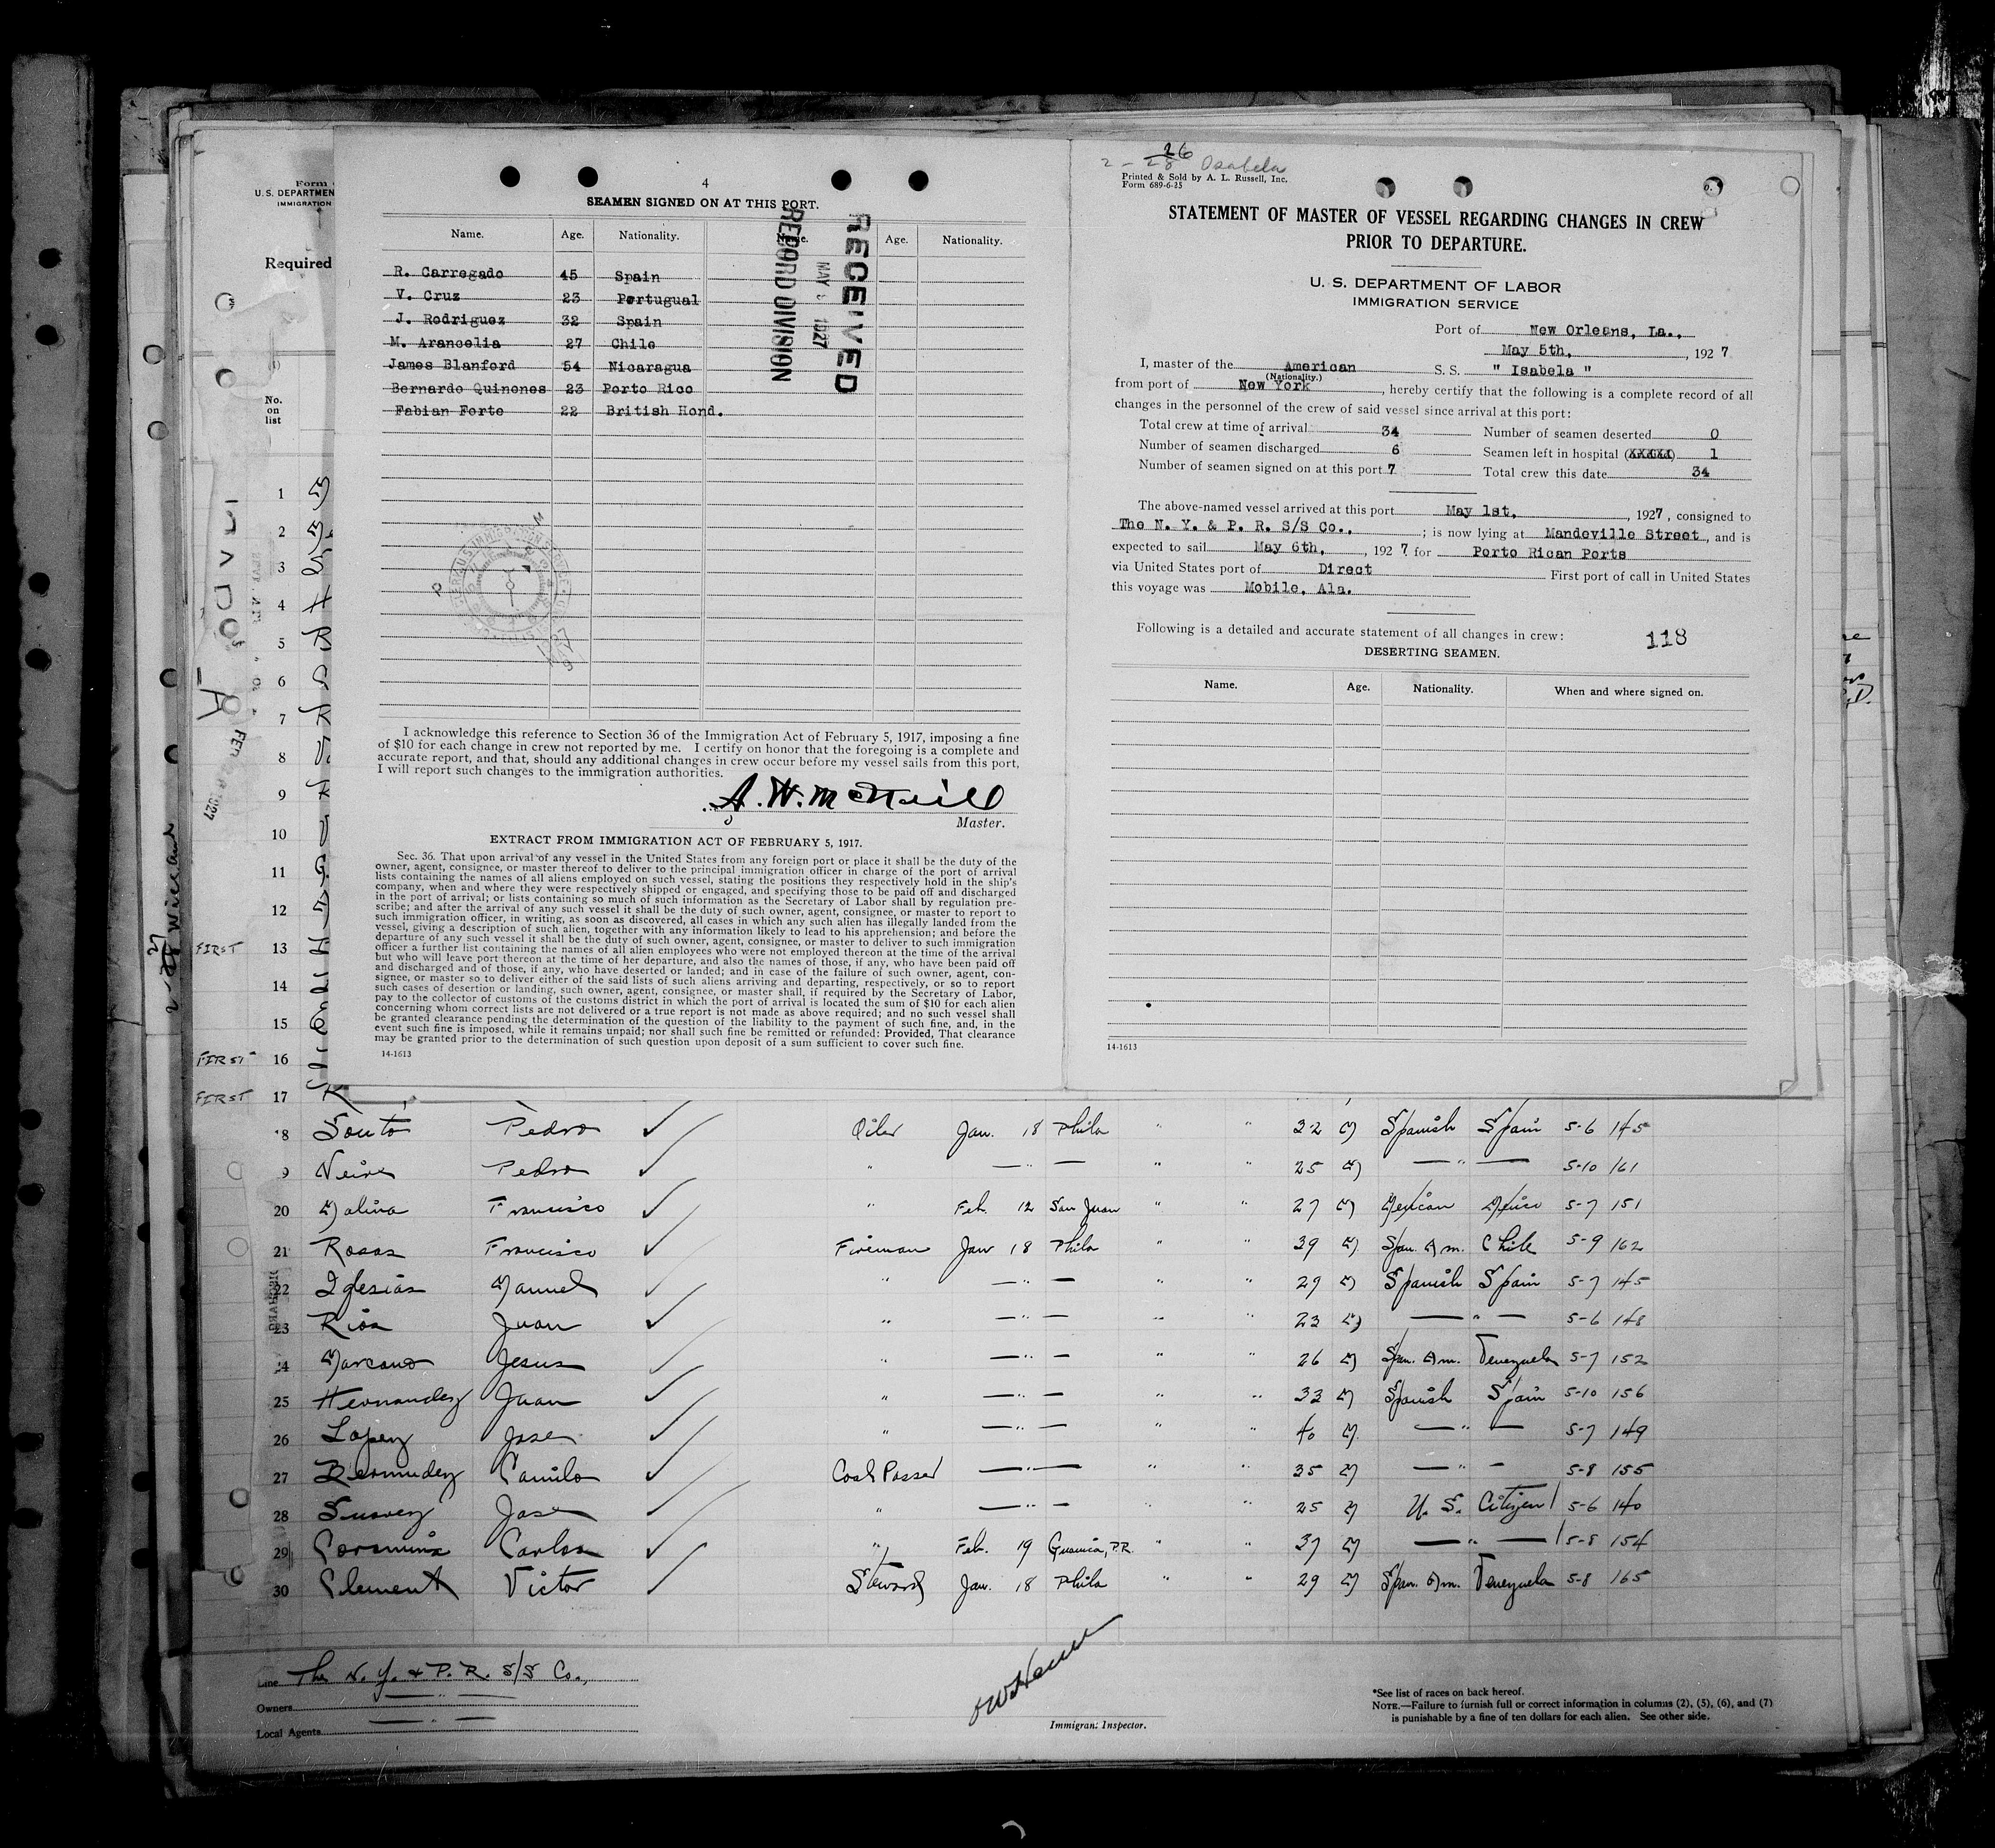 Form
U. S. DEPARTMEN
IMMIGRATION
Required
No.
on
list
4
SEAMEN SIGNED ON AT THIS PORT.
Name. Age. Nationality. Name. Age. Nationality.
R. Carregado 45 Spain
V. Cruz 23 Portugual
J. Rodriguez 32 Spain
M. Arancelia 27 Chile
James Blanford 54 Nicaragua
Bernardo Quinones 23 Porto Rico
Fabian Forte 22 British Hond.
RECEIVED
MAY 1927
RECORD DIVISION
I acknowledge this reference to Section 36 of the Immigration Act of February 5, 1917, imposing a fine
of $10 for each change in crew not reported by me. I certify on honor that the foregoing is a complete and
accurate report, and that, should any additional changes in crew occur before my vessel sails from this port,
I will report such changes to the immigration authorities.
A. W. McNeill
Master.
EXTRACT FROM IMMIGRATION ACT OF FEBRUARY 5, 1917.
Sec. 36. That upon arrival of any vessel in the United States from any foreign port or place it shall be the duty of the
owner, agent, consignee, or master thereof to deliver to the principal immigration officer in charge of the port of arrival
lists containing the names of all aliens employed on such vessel, stating the positions they respectively hold in the ship's
company, when and where they were respectively shipped or engaged, and specifying those to be paid off and discharged
in the port of arrival; or lists containing so much of such information as the Secretary of Labor shall by regulation pre-
scribe; and after the arrival of any such vessel it shall be the duty of such owner, agent, consignee, or master to report to
such immigration officer, in writing, as soon as discovered, all cases in which any such alien has illegally landed from the
vessel, giving a description of such alien, together with any information likely to lead to his apprehension; and before the
departure of any such vessel it shall be the duty of such owner, agent, consignee, or master to deliver to such immigration
officer a further list containing the names of all alien employees who were not employed thereon at the time of the arrival
but who will leave port thereon at the time of her departure, and also the names of those, if any, who have been paid off
and discharged and of those, if any, who have deserted or landed; and in case of the failure of such owner, agent, con-
signee, or master so to deliver either of the said lists of such aliens arriving and departing, respectively, or so to report
such cases of desertion or landing, such owner, agent, consignee, or master shall, if required by the Secretary of Labor,
pay to the collector of customs of the customs district in which the port of arrival is located the sum of $10 for each alien
concerning whom correct lists are not delivered or a true report is not made as above required; and no such vessel shall
be granted clearance pending the determination of the question of the liability to the payment of such fine, and, in the
event such fine is imposed, while it remains unpaid; nor shall such fine be remitted or refunded: Provided, That clearance
may be granted prior to the determination of such question upon deposit of a sum sufficient to cover such fine.
14-1613
2 - 26 28 Osabela
Printed & Sold by A. L. Russell, Inc.
Form 689-6-25
STATEMENT OF MASTER OF VESSEL REGARDING CHANGES IN CREW
PRIOR TO DEPARTURE.
U. S. DEPARTMENT OF LABOR
IMMIGRATION SERVICE
Port of New Orleans, La.,
May 5th, , 192 7
I, master of the American S. S. " Isabela "
(Nationality.)
from port of New York , hereby certify that the following is a complete record of all
changes in the personnel of the crew of said vessel since arrival at this port:
Total crew at time of arrival 34 Number of seamen deserted 0
Number of seamen discharged 6 Seamen left in hospital (XXXXX) 1
Number of seamen signed on at this port 7 Total crew this date 34
The above-named vessel arrived at this port May 1st, , 1927, consigned to
The N. Y. & P. R. S/S Co., ; is now lying at Mandeville Street, and is
expected to sail May 6th, , 192 7 for Porto Rican Ports
via United States port of Direct First port of call in United States
this voyage was Mobile, Ala.
Following is a detailed and accurate statement of all changes in crew: 118
DESERTING SEAMEN.
Name. Age. Nationality. When and where signed on.
14-1613
1
2
3
4
5
6
7
8
9
10
11
12
FIRST 13
14
15
FIRST 16
FIRST 17
18 Souto Pedro Oiler Jan. 18 Phila " " 32 M Spanish Spain 5-6 145
9 Neira Pedro " — " — " " 25 M — " — 5-10 161
20 Molina Francisco " Feb. 12 San Juan " " 27 M Mexican Mexico 5-7 151
21 Rosas Francisco Fireman Jan 18 Phila " " 39 M Span. Am. Chile 5-9 162
22 Iglesias Manuel " — " — " " 29 M Spanish Spain 5-7 145
23 Rios Juan " — " — " " 23 M — " — 5-6 148
24 Marcano Jesus " — " — " " 26 M Span. Am. Venezuela 5-7 152
25 Hernandez Juan " — " — " " 33 M Spanish Spain 5-10 156
26 Lopez Jose " — " — " " 40 M — " — 5-7 149
27 Bermudez Camilo Coal Passer — " — " " 35 M — " — 5-8 155
28 Suarez Jose " — " — " " 25 M U. S. Citizen 5-6 140
29 Coromina Carlos " Feb. 19 Guanica, P.R. " " 37 M — " — 5-8 154
30 Clement Victor Steward Jan. 18 Phila " " 29 M Span. Am. Venezuela 5-8 165
Line The N. Y. & P. R. S/S Co.,
Owners — " —
Local Agents — " —
Immigrant Inspector.
*See list of races on back hereof.
NOTE.—Failure to furnish full or correct information in columns (2), (5), (6), and (7)
is punishable by a fine of ten dollars for each alien. See other side.